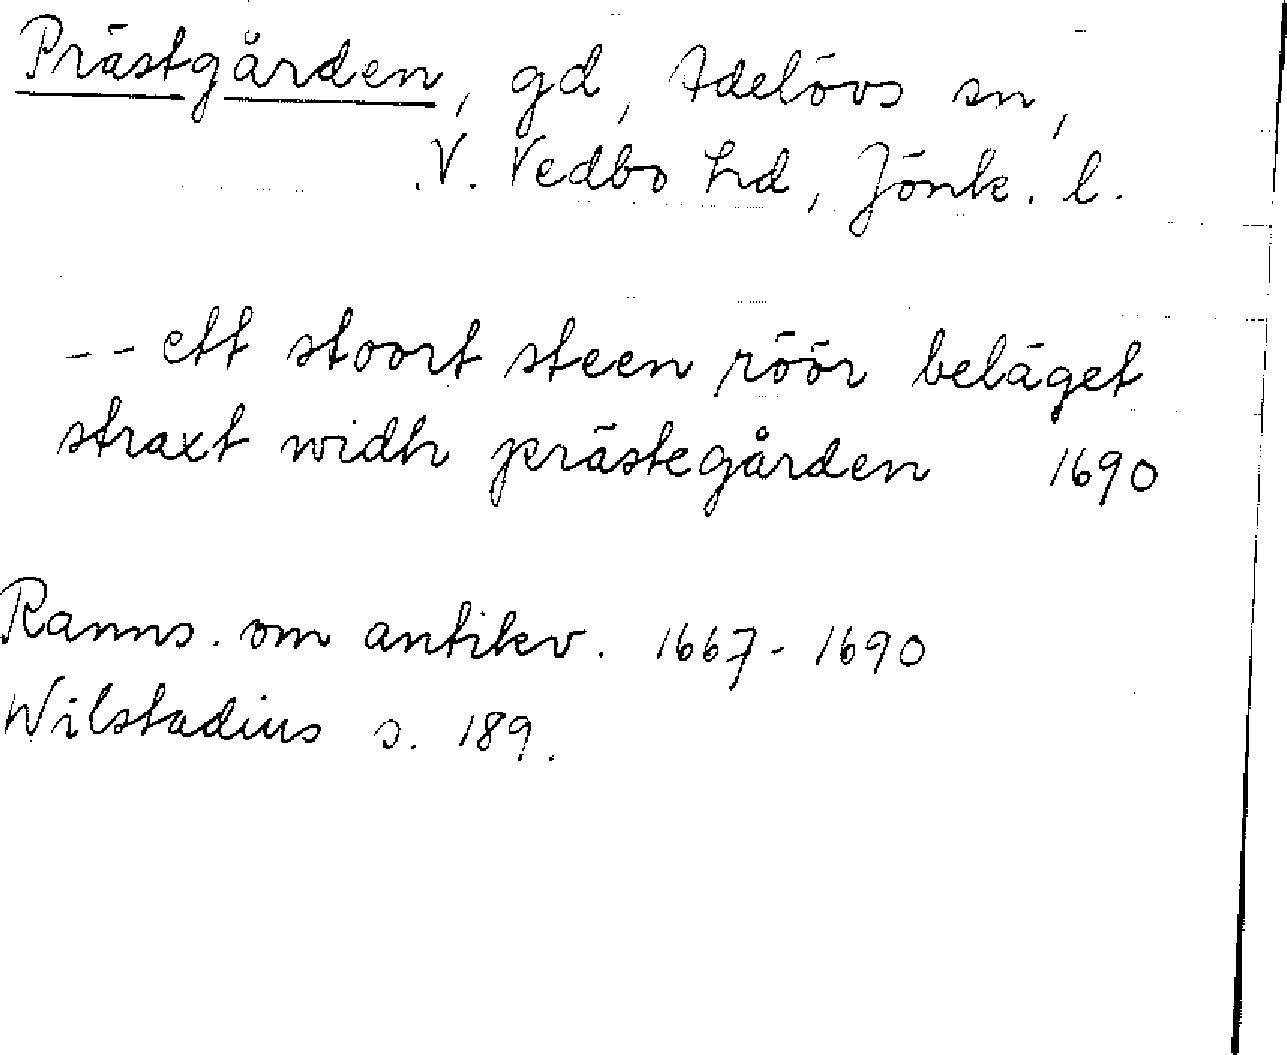 Prästgården, gd, Adelövs sn,
V. Vedbo hd, Jönk. l.
-- ett stoort steen röör beläget
straxt widh prästegården 1690
Ranns. om antikv. 1667-1690
Wilstadius s. 189.